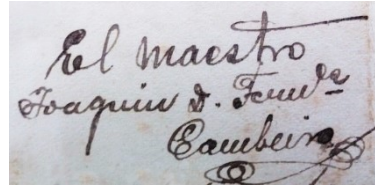 El maestro
Joaquin D. Fernds
Cambeiro